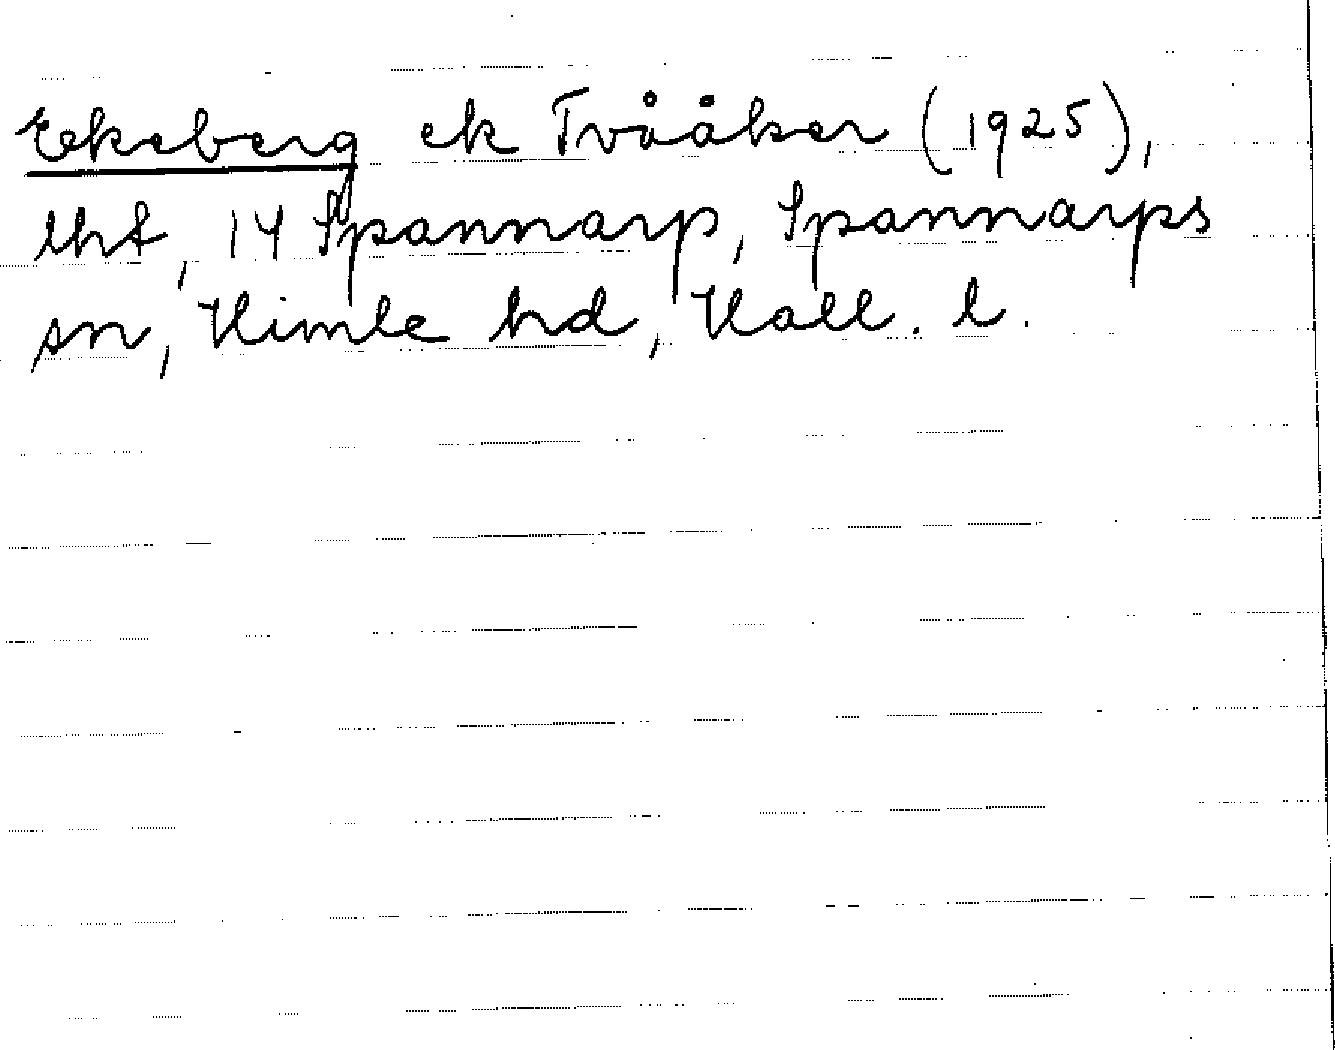 Ekeberg ek Tvååker (1925),
lht, 14 Spannarp, Spannarps
sn, Himle hd, Hall. l.